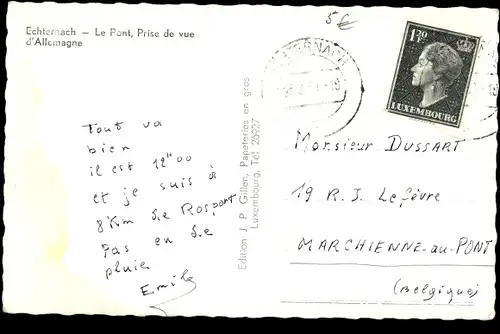 Echternach — Le Pont, Prise de vue
d'Allemagne
5€
1F20
LUXEMBOURG
Tout va
bien
il est 12h00
et je suis à
8 Km de Rosport
Pas eu de
pluie
Emile
Edition J. P. Gillen, Papeteries en gros
Luxembourg, Tél 26927
Monsieur DUSSART
19 R. J. Lefèvre
MARCHIENNE-au-PONT
(Belgique)